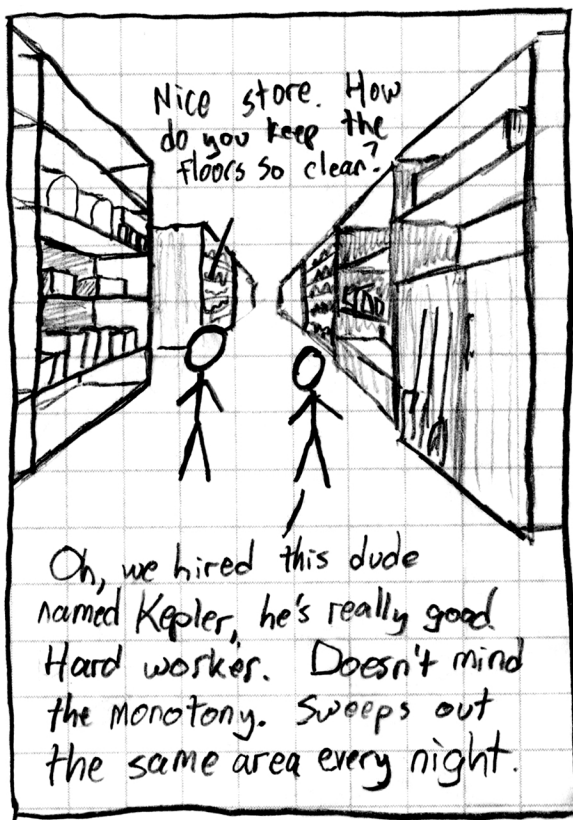 Nice store. How
do you keep the
floors so clean?
Oh, we hired this dude
named Kepler, he's really good
Hard worker. Doesn't mind
the monotony. Sweeps out
the same area every night.